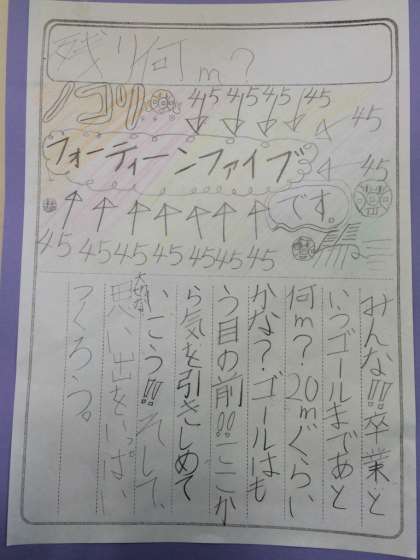 残り何m?
ノコリ
45 45 45 45
45
フォーティーンファイブ
45
です。
45 45 45 45 45 45 45
みんな!!卒業と
いうゴールまであと
何m?20mぐらい
かな?ゴールはも
う目の前!!ここか
ら気を引きしめて
いこう!!そして、
大切な
思い出をいっぱい
つくろう。